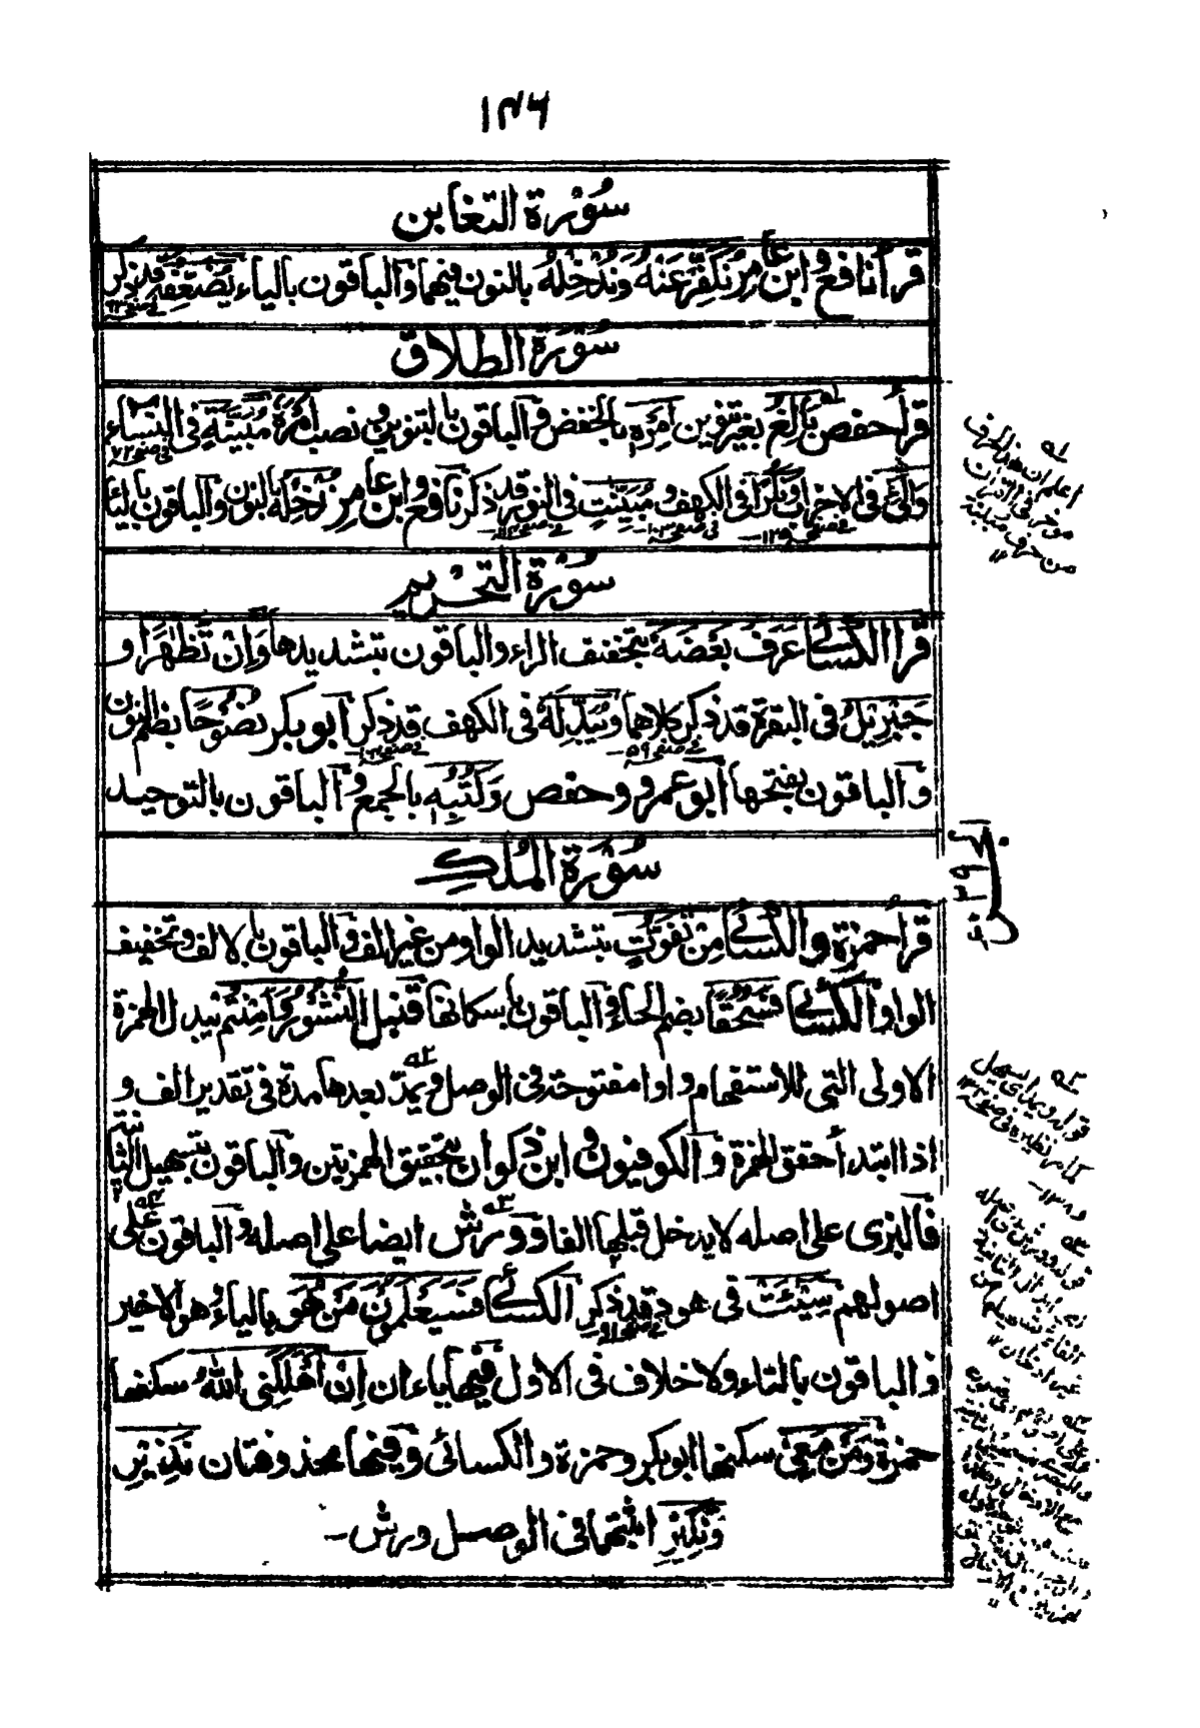 ١٣٦
سُوْرَةُ التغابن
قرأ نافع وابن عامر نُكَفِّرْ عَنْهُ وَنُدْخِلْهُ بالنون فيهما والباقون بالياء يُضٰعِفْهُ قد ذكر
سُوْرَةُ الطلاق
قرأ حفص بَالِغُ بغير تنوين اَمْرِهٖ بالخفض والباقون بالتنوين ونصب اَمْرَهٗ مُبَيِّنَةٍ فى النساء
وَالّٰٓئِى فى الاحزاب ونُكْرًا فى الكهف ومُبَيِّنٰتٍ فى النور قد ذكر نافع وابن عامر نُدْخِلْهُ بالنون والباقون بالياء
سُوْرَةُ التحريم
قرأ الكسائى عَرَفَ بَعْضَهٗ بتخفيف الراء والباقون بتشديدها وَاِنْ تَظٰهَرَا و
جِبْرِيْلُ فى البقرة قد ذكر كلاهما ويُبْدِلَهٗ فى الكهف قد ذكر ابوبكر نُصُوْحًا بضم النون
والباقون بفتحها ابوعمرو وحفص وَكُتُبِهٖ بالجمع والباقون بالتوحيد
سُوْرَةُ الْمُلْكِ
قرأ حمزة والكسائى مِنْ تَفَوُّتٍ بتشديد الواو من غير الف والباقون بالالف وتخفيف
الواو الكسائى فَسُحُقًا بضم الحاء والباقون باسكانها قنبل النُّشُوْرُ وَاَمِنْتُمْ يبدل الهمزة
الاولى التى للاستفهام واوا مفتوحة فى الوصل ويمدّ بعدها مدة فى تقدير الف و
اذا ابتدأ حقق الهمزة والكوفيون وابن ذكوان بتحقيق الهمزتين والباقون بتسهيل الثانية
فالبزى على اصله لا يدخل قبلها الفا وورش ايضا على اصله والباقون على
اصولهم سِيْئَتْ فى هود قد ذكر الكسائى فَسَيَعْلَمُوْنَ مَنْ هُوَ بالياء وهو الاخير
والباقون بالتاء ولا خلاف فى الاول فيها ياءان اِنْ اَهْلَكَنِىَ اللّٰهُ سكنها
حمزة وَمَنْ مَّعِىَ سكنها ابوبكر وحمزة والكسائى وفيها محذوفتان نَذِيْرِ
وَنَكِيْرِ اثبتهما فى الوصل ورش -
اعلم ان هذا الحرف
موخر فى القرآن
من حرف مبينة